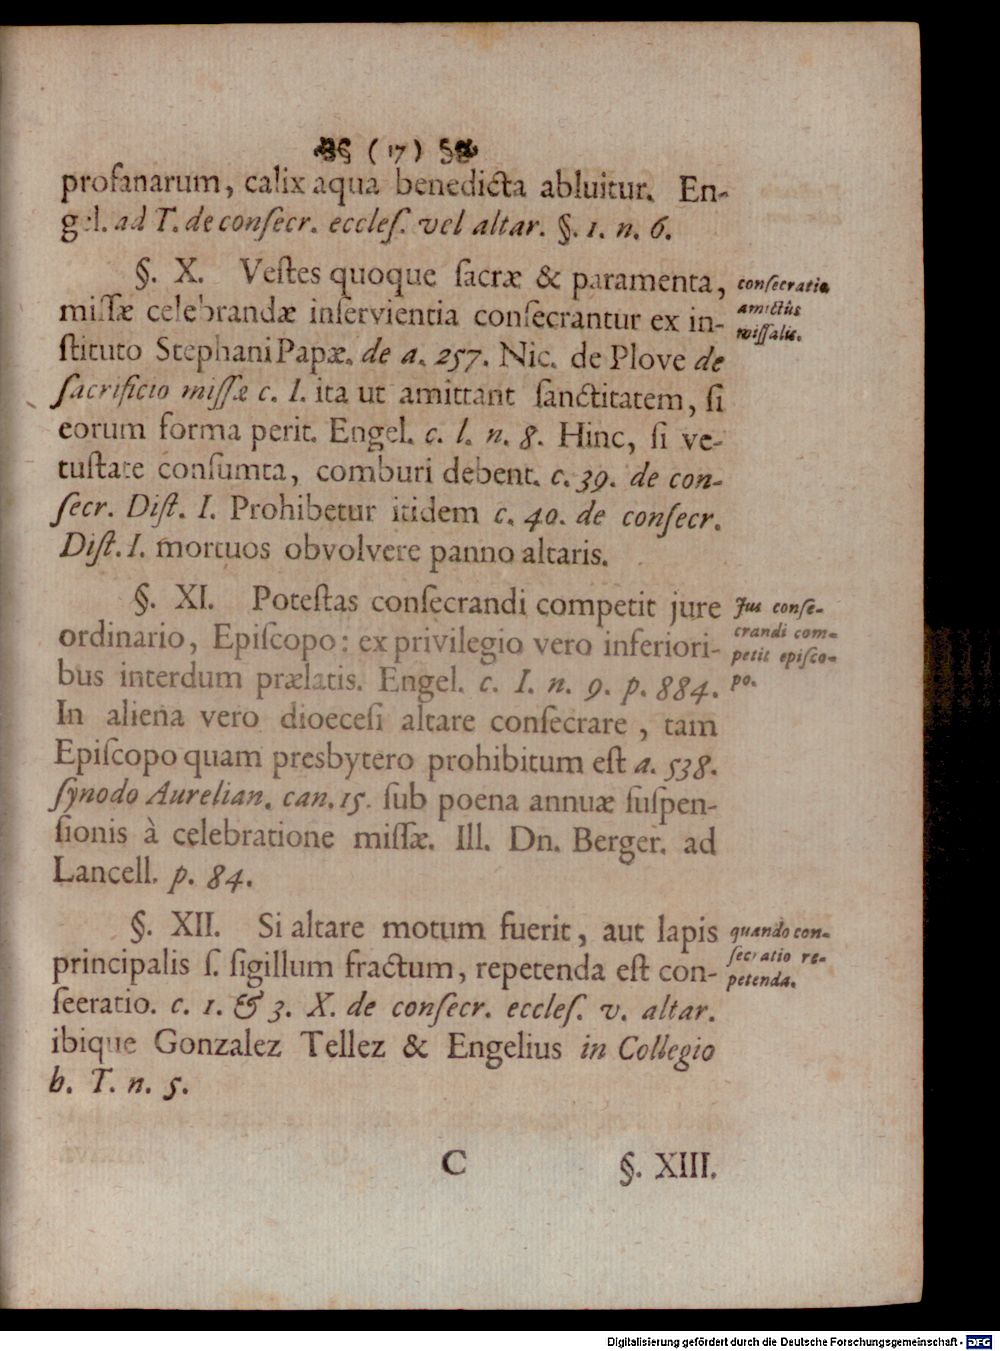 ( 17 )
profanarum, calix aqua benedicta abluitur. En-
gel. ad T. de conſecr. eccleſ. vel altar. §. 1. n. 6.
§. X. Veſtes quoque ſacræ & paramenta,
miſſæ celebrandæ inſervientia conſecrantur ex in-
ſtituto Stephani Papæ. de a. 257. Nic. de Plove de
ſacrificio miſſæ c. l. ita ut amittant ſanctitatem, ſi
eorum forma perit. Engel. c. l. n. 8. Hinc, ſi ve-
tuſtate conſumta, comburi debent. c. 39. de con-
ſecr. Diſt. I. Prohibetur itidem c. 40. de conſecr.
Diſt. I. mortuos obvolvere panno altaris.
conſecratio
amictûs
miſſalis.
§. XI. Poteſtas conſecrandi competit jure
ordinario, Epiſcopo: ex privilegio vero inferiori-
bus interdum prælatis. Engel. c. I. n. 9. p. 884.
In aliena vero dioeceſi altare conſecrare , tam
Epiſcopo quam presbytero prohibitum eſt a. 538.
ſynodo Aurelian. can. 15. ſub poena annuæ ſuſpen-
ſionis à celebratione miſſæ. Ill. Dn. Berger. ad
Lancell. p. 84.
Jus conſe-
crandi com-
petit epiſco-
po.
§. XII. Si altare motum fuerit, aut lapis
principalis ſ. ſigillum fractum, repetenda eſt con-
ſeeratio. c. 1. & 3. X. de conſecr. eccleſ. v. altar.
ibique Gonzalez Tellez & Engelius in Collegio
h. T. n. 5.
quando con-
ſecratio re-
petenda.
C §. XIII.
Digitalisierung gefördert durch die Deutsche Forschungsgemeinschaft - DFG